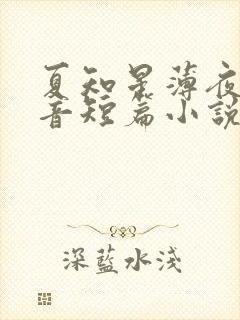 夏知星薄夜
音短篇小說
深藍水淺